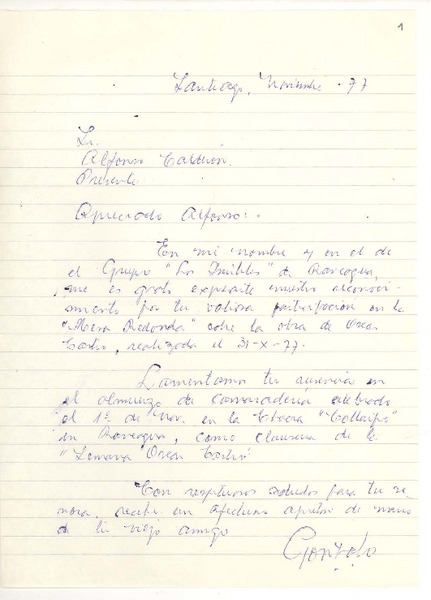 1
Santiago, Noviembre - 77
Sr.
Alfonso Calderón.
Presente
Apreciado Alfonso:
En mi nombre y en el de
el Grupo "Los Inútiles" de Rancagua,
me es grato expresarte nuestro reconoci-
miento por tu valiosa participación en la
"Mesa Redonda" sobre la obra de Oscar
Castro, realizada el 31-X-77.
Lamentamos tu ausencia en
el almuerzo de camaradería celebrado
el 1º de Nov. en la
en Rancagua, como clausura de la
"Semana Oscar Castro"
Con respetuosos saludos para tu se-
ñora, recibe un afectuoso apretón de manos
de tu viejo amigo
Gonzalo